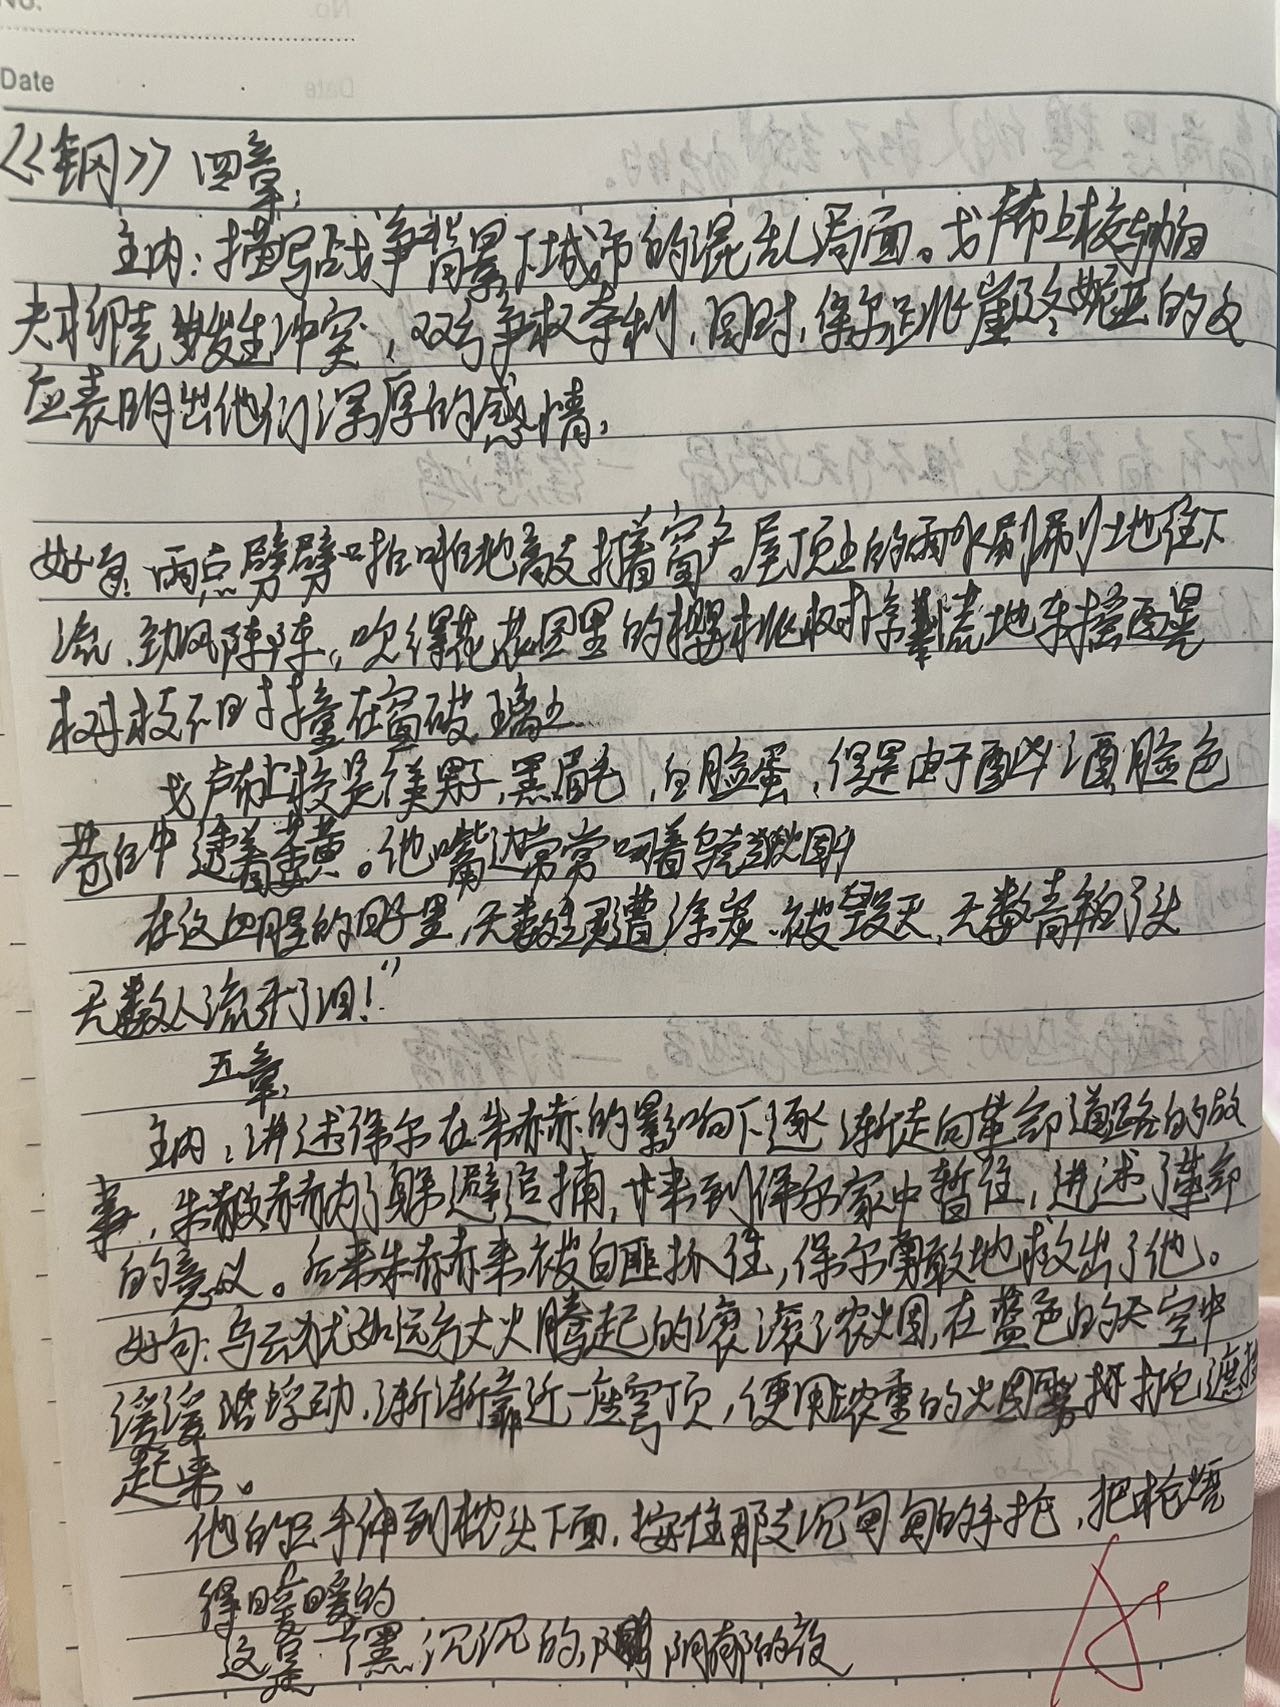 Date
《钢》四章:
主内:描写战争背景下城市的混乱局面。戈卢布上校和帕
夫柳克发生冲突,双方争权夺利,同时,保尔跳崖冬妮亚的反
应表明出他们深厚的感情,
好句:雨点劈劈啪啪地敲打着窗户。屋顶上的雨水刷刷地往下
流、劲风阵阵,吹得花园里的樱桃树惊慌地东摇西晃
树枝不时撞在窗玻璃上
戈卢布上校是美男子,黑眉毛,白脸蛋,但是由于酗酒脸色
苍白中透着蜡黄。他嘴边常常叼着烟斗
在这血腥的日子里,无数生灵遭涂炭、被毁灭,无数青年白了头
无数人流干了泪!”
五章,
主内:讲述保尔在朱赫赤的影响下逐渐走向革命道路的故
事,朱赫赤为了躲避追捕,来到保尔家中暂住,讲述了革命
的意义。后来朱赫赤来被白匪抓住,保尔勇敢地救出了他。
好句:乌云犹如远方大火腾起的滚滚浓烟,在蓝色的天空中
缓缓浮动,渐渐靠近一座穹顶,便用浓重的烟雾把它遮掩
起来。
他的手伸到枕头下面,按住那支沉甸甸的手枪,把枪焐
得暖暖的
这是一个黑沉沉的,阴郁的夜
A+